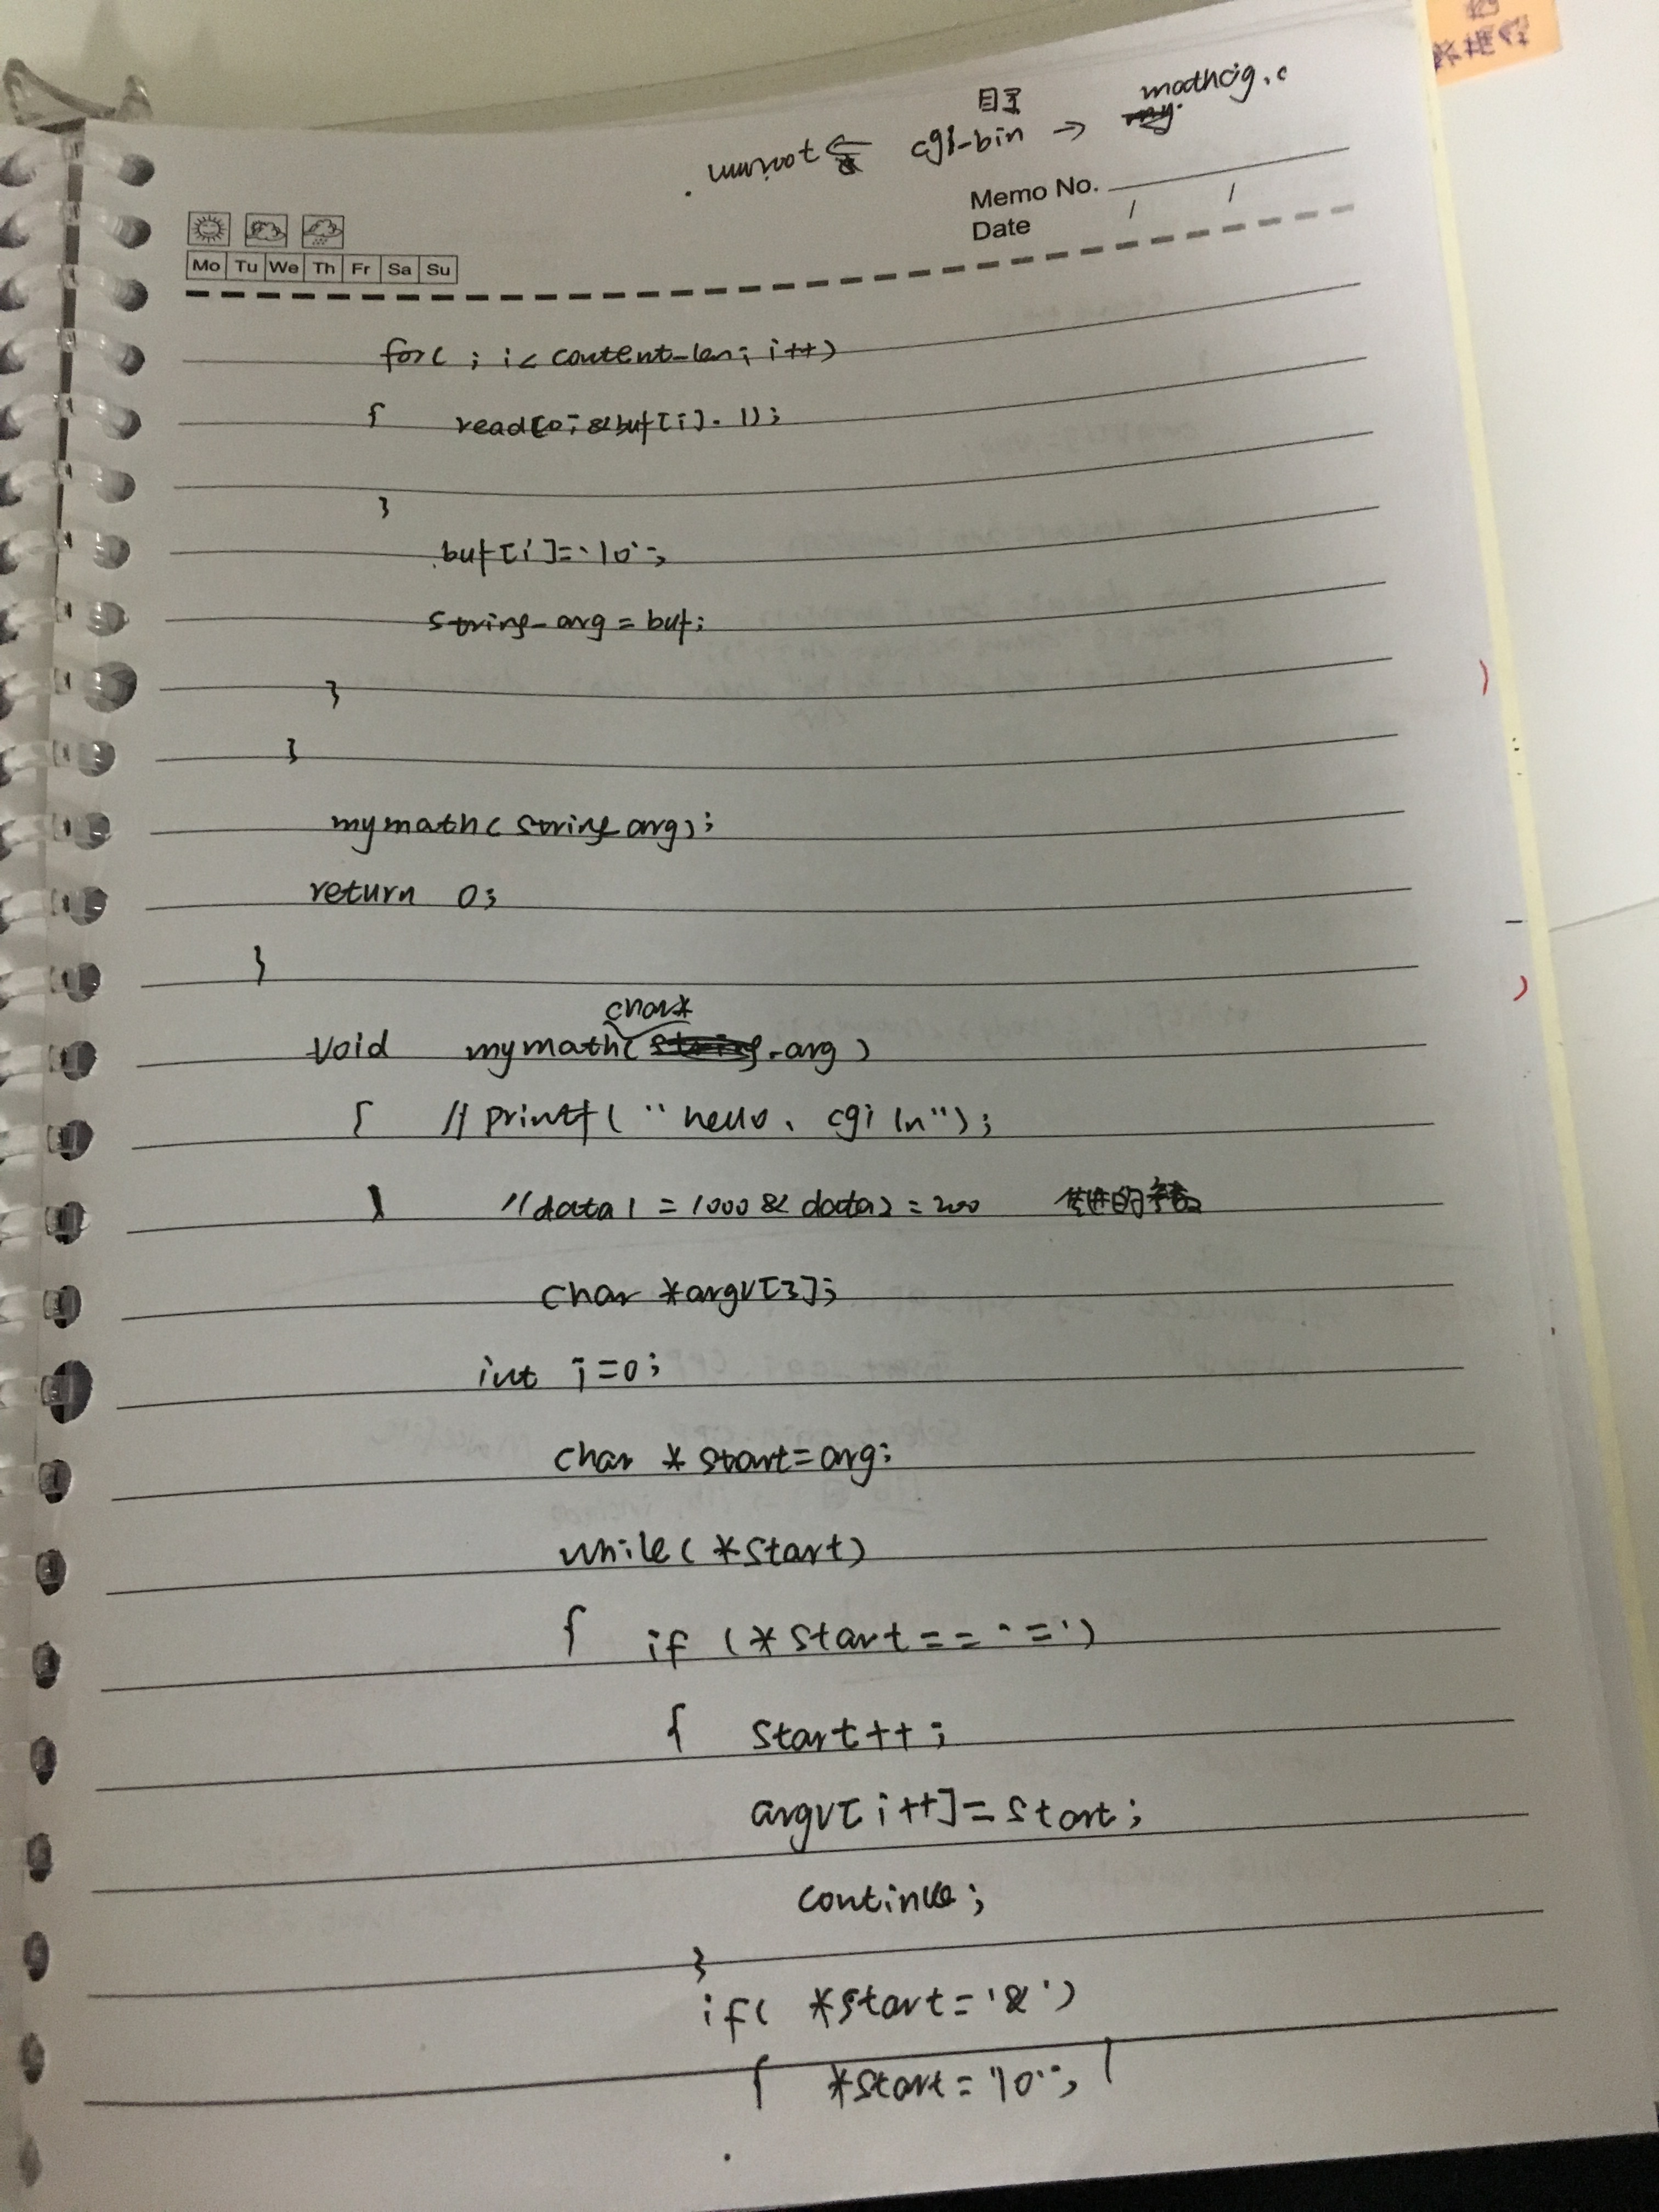 目录 mathcig.c
wwwroot ← cgi-bin →
Memo No.
Date / /
Mo Tu We Th Fr Sa Su
for( ; i< content-len; i++)
{ read(0, &buf[i], 1);
}
buf[i]='\0';
string_arg = buf;
}
}
mymath( string_arg);
return 0;
}
char*
void mymath( arg)
{ // printf( "hello, cgi \n");
//data1 = 1000 & data2 = 200 传进的
char *argv[3];
int i=0;
char * start=arg;
while( *start)
{ if (*start=='=')
{ start++;
argv[i++]=start;
continue;
}
if( *start='&')
{ *start='\0';